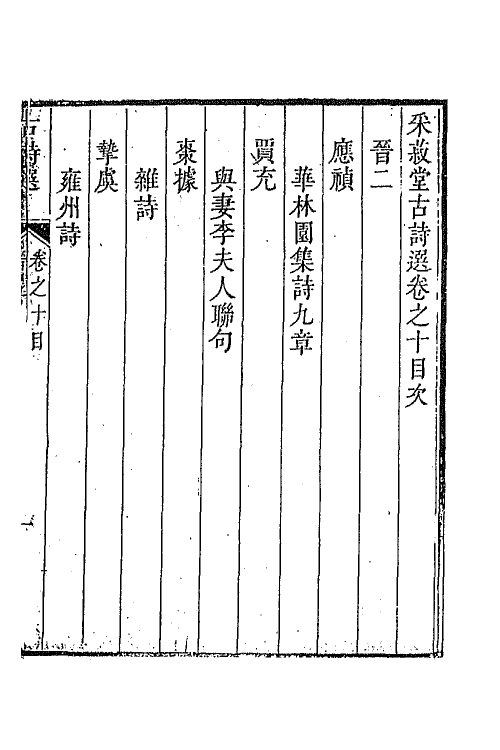 采菽堂古詩選卷之十目次
晉二
應禎
華林園集詩九章
賈充
與妻李夫人聯句
棗據
雜詩
摯虞
雍州詩
古詩選
卷之十目
一